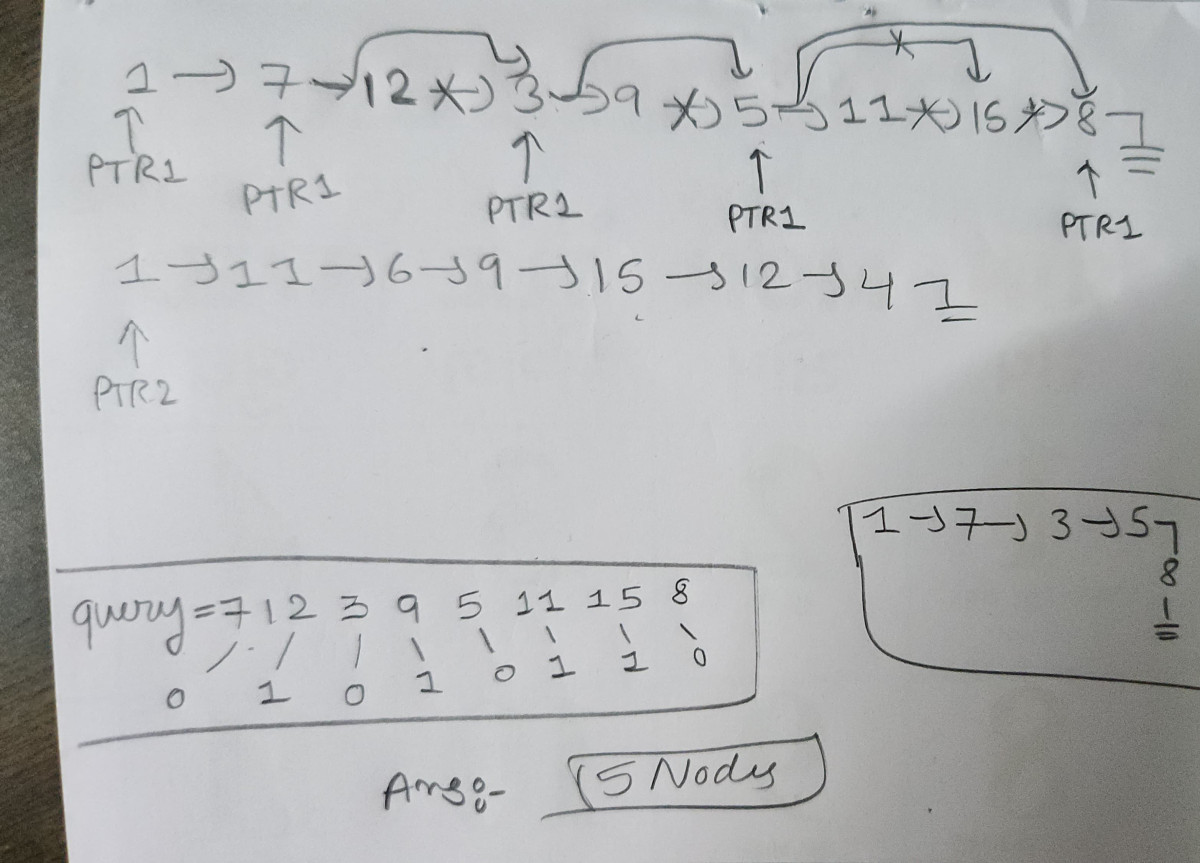 1 → 7 → 12 → 3 → 9 → 5 → 11 → 15 → 8
PTR1 PTR1 PTR1 PTR1 PTR1
1 → 11 → 6 → 9 → 15 → 12 → 4
PTR2
1 → 7 → 3 → 5
8
query = 7 12 3 9 5 11 15 8
0 1 0 1 0 1 1 0
Ans:- 5 Nodes